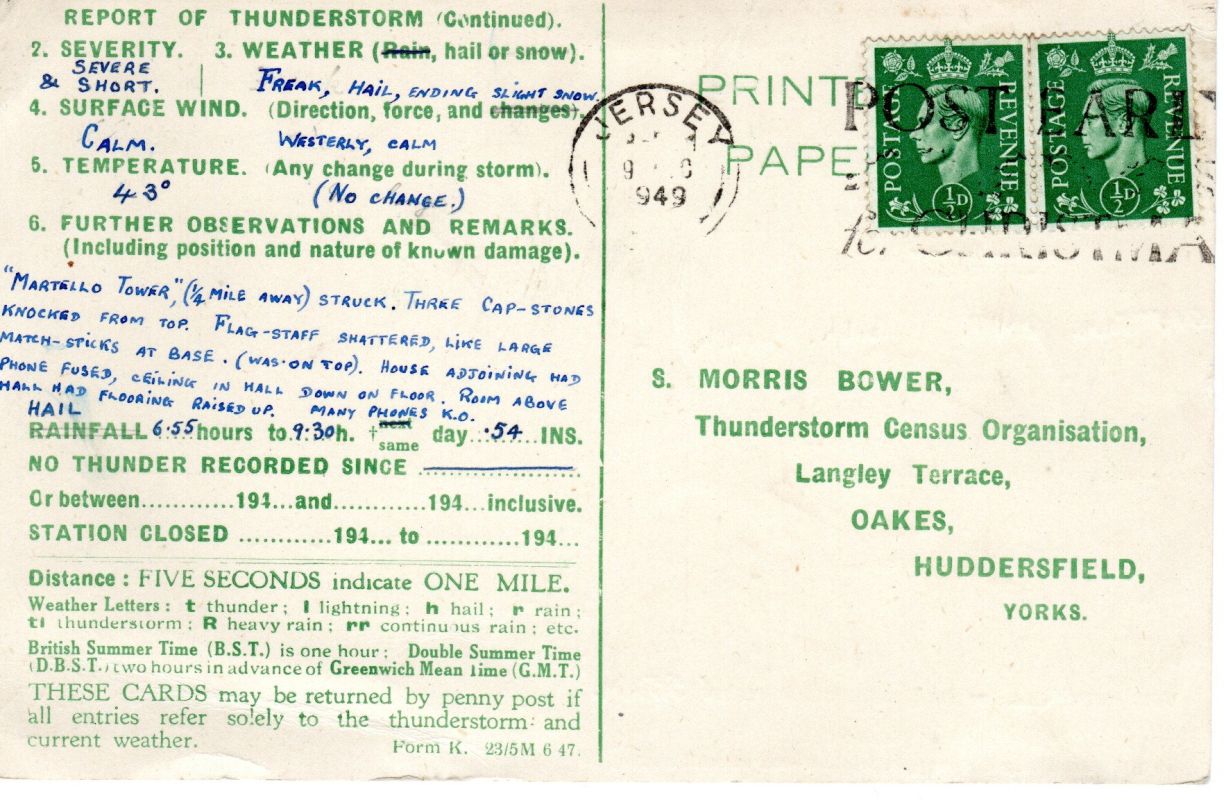 REPORT OF THUNDERSTORM (Continued).
2. SEVERITY. 3. WEATHER (Rain, hail or snow).
SEVERE & SHORT. FREAK, HAIL, ENDING SLIGHT SNOW.
4. SURFACE WIND. (Direction, force, and changes).
CALM. WESTERLY, CALM
5. TEMPERATURE. (Any change during storm).
43° (NO CHANGE.)
6. FURTHER OBSERVATIONS AND REMARKS.
(Including position and nature of known damage).
"MARTELLO TOWER", (¼ MILE AWAY) STRUCK. THREE CAP-STONES
KNOCKED FROM TOP. FLAG-STAFF SHATTERED, LIKE LARGE
MATCH-STICKS AT BASE. (WAS ON TOP). HOUSE ADJOINING HAD
PHONE FUSED, CEILING IN HALL DOWN ON FLOOR. ROOM ABOVE
HALL HAD FLOORING RAISED UP. MANY PHONES K.O.
HAIL
RAINFALL 6.55 hours to 9.30 h. † next same day .54 INS.
NO THUNDER RECORDED SINCE
Or between............194...and............194...inclusive.
STATION CLOSED ............194... to ............194...
Distance : FIVE SECONDS indicate ONE MILE.
Weather Letters : t thunder ; l lightning ; h hail ; r rain ;
tl thunderstorm ; R heavy rain ; rr continuous rain ; etc.
British Summer Time (B.S.T.) is one hour ; Double Summer Time
(D.B.S.T.) two hours in advance of Greenwich Mean Time (G.M.T.)
THESE CARDS may be returned by penny post if
all entries refer solely to the thunderstorm and
current weather.
Form K. 23/5M 6 47.
PRINTED
PAPE
JERSEY
1949
POST EARL
for CHRISTMA
POSTAGE REVENUE ½D
POSTAGE REVENUE ½D
S. MORRIS BOWER,
Thunderstorm Census Organisation,
Langley Terrace,
OAKES,
HUDDERSFIELD,
YORKS.